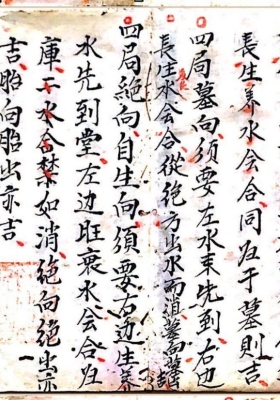 長生养水会合同歸于墓則吉
四局墓向須要左水来先到右边
長生水会合從绝方出水而消墓
四局绝向自生向須要右边生养
水先到堂左边旺衰水会合归
庫二水会禁如消绝向绝出亦
吉胎向胎出亦吉